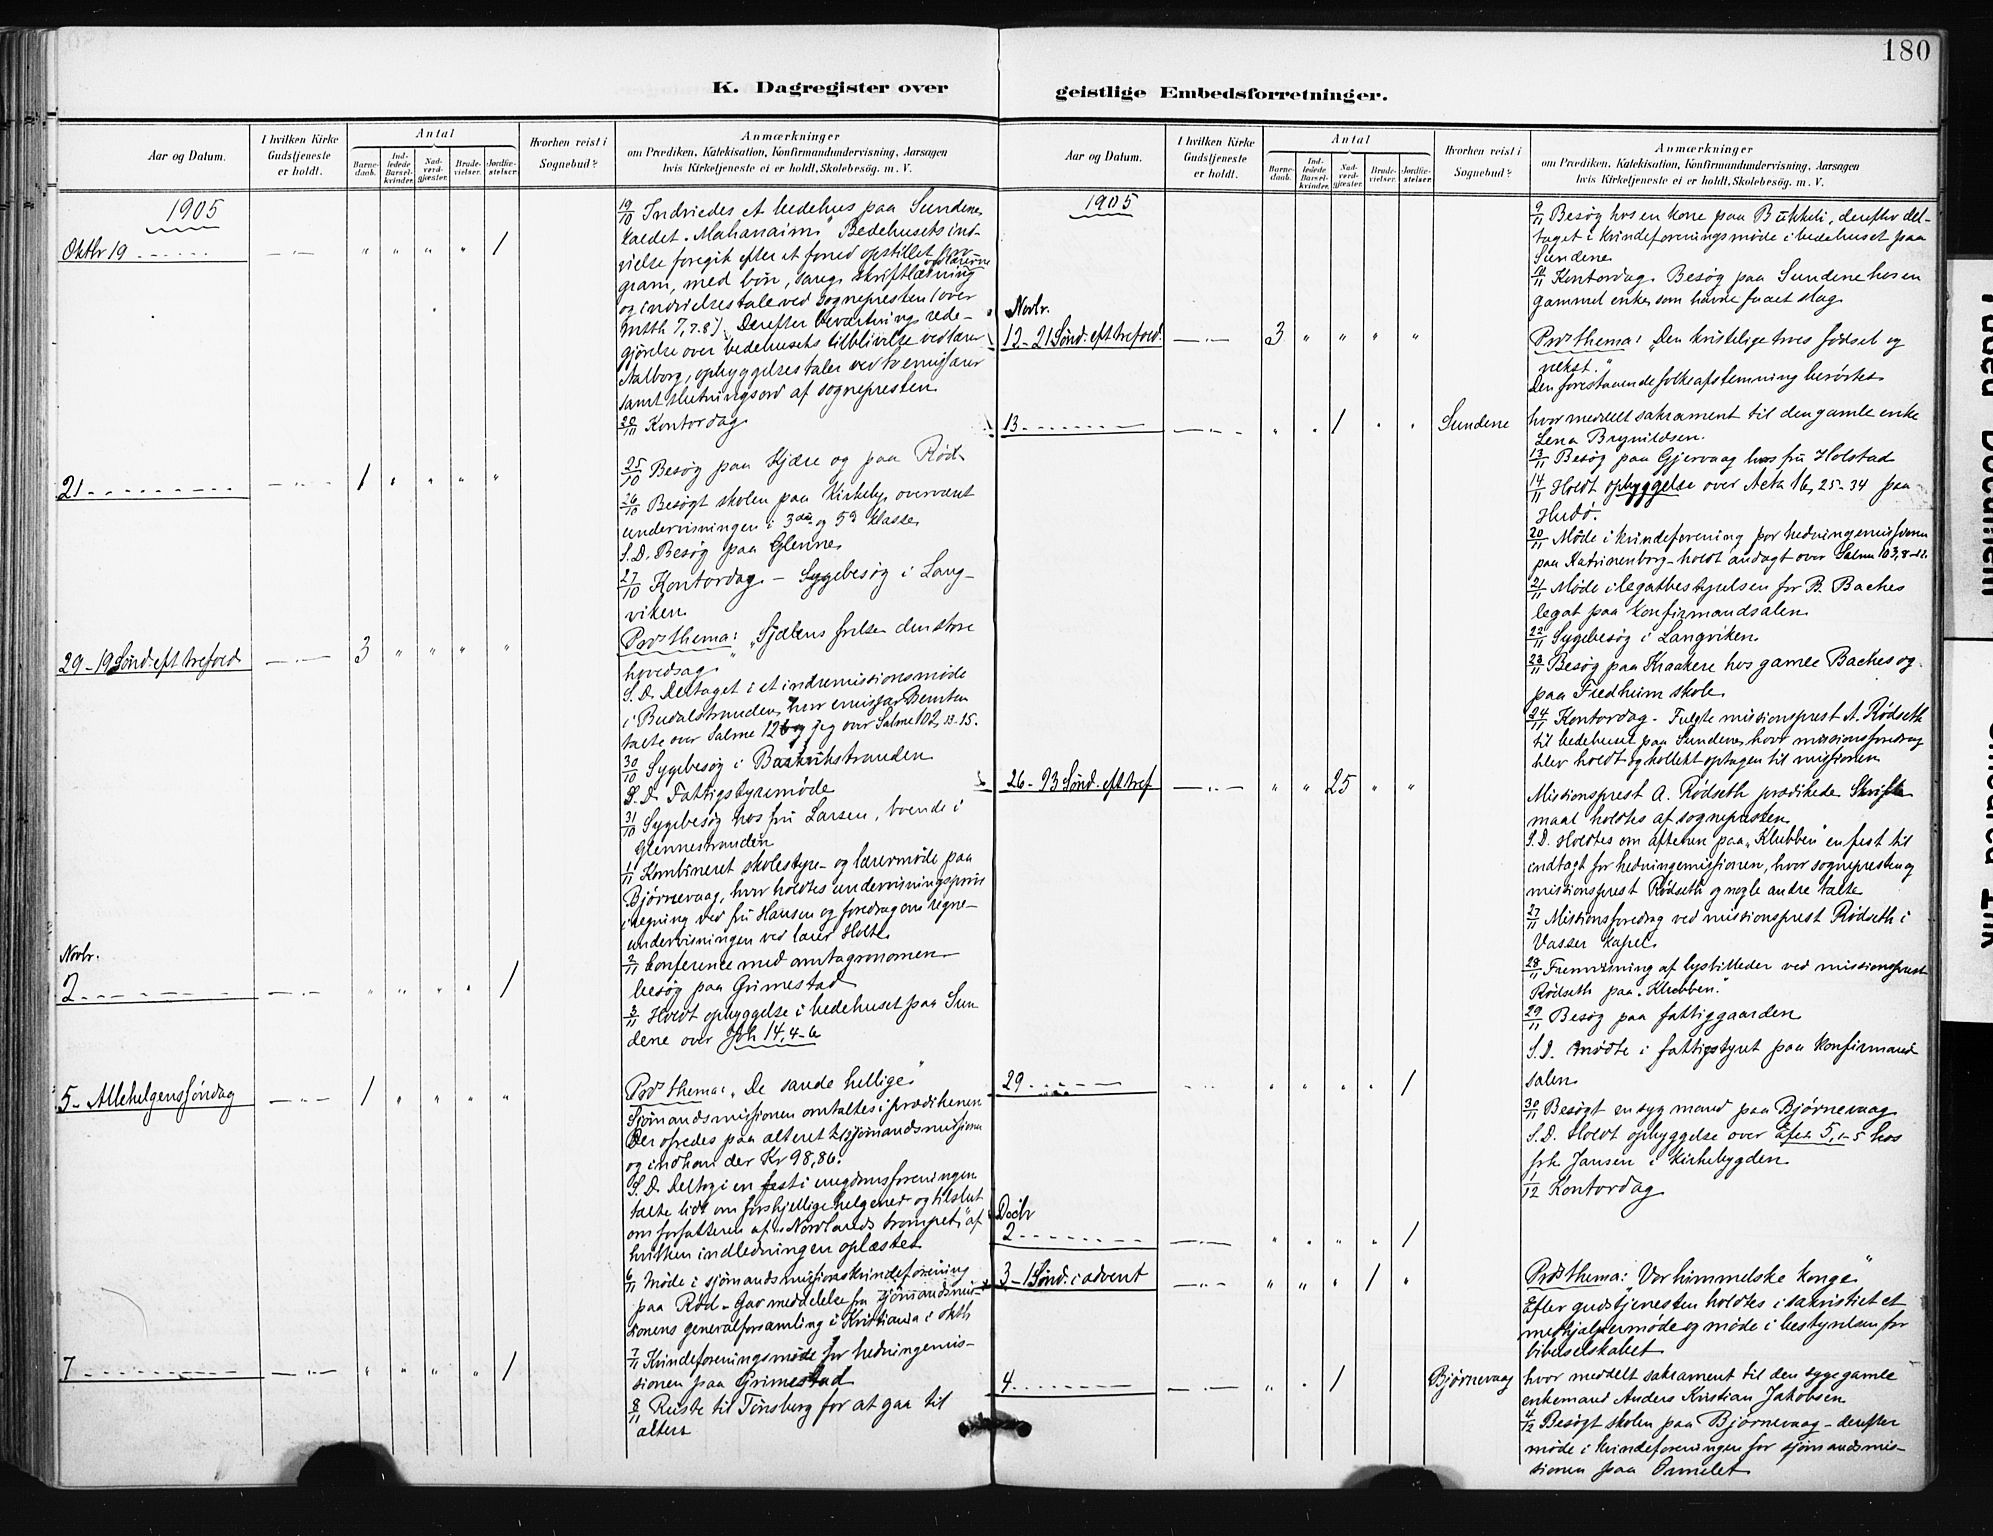 180
K. Dagregister over
geistlige Embedsforretninger.
Aar og Datum.
I hvilken Kirke Gudstjeneste er holdt.
Antal
Barne-daab.
Ind-ledede Barsel-kvinder.
Nad-verd-gjæster.
Brude-vielser.
Jordfæ-stelser.
Hvorhen reist i Sognebud?
Anmærkninger
om Prædiken, Katekisation, Konfirmandundervisning, Aarsagen
hvis Kirketjeneste ei er holdt, Skolebesøg. m. V.
1905
19/10 Indviedes et bedehus paa Sundene,
kaldet „Mahanaim". Bedehusets ind-
Oktbr 19 " " " " 1
vielse foregik efter et forud opstillet pro
gram, med bøn, sang, skriftlæsning
og indvielsestale ved sognepresten (over
Mtth 7, 7.8). Derefter beværtning, rede-
gjørelse over bedehusets tilblivelse ved lærer
Aalborg, opbyggelsestaler ved to emissærer
samt slutningsord af sognepresten
20/11 Kontordag
25/10 Besøg paa Kjære og paa Rød
21 1 " " " "
26/10 Besøgt skolen paa Kirkeby, overværet
undervisningen i 3die og 5te klasse
S.D. Besøg paa Glenne
27/10 Kontordag – Sygebesøg i Lang-
viken
Præd thema: „Sjælens frelse den store
29 – 19 Sønd. eft trefold 3 " " " "
hovedsag"
S.D. Deltaget i et indremissionsmøde
i Budalstranden, hvor emissær Berntsen
talte over Salme 126 og jeg over Salme 102, 13-15.
30/10 Sygebesøg i stranden
S.D. Fattigstyremøde
31/10 Sygebesøg hos fru Larsen, boende i
Glennestranden
1/11 Kombineret skolestyre- og lærermøde paa
Bjørnevaag, hvor holdtes undervisningsprøve
i regning ved fru Hansen og foredrag om regne-
undervisningen ved lærer Holte
Novbr.
2/11 Conference med amtagronomen –
2 " " " " 1
besøg paa Grimestad
3/11 Holdt opbyggelse i bedehuset paa Sun
dene over Joh 14, 4-6
5 – Allehelgenssøndag 1 " " " "
Præd thema: „De sande hellige"
Sjømandsmissionen omtaltes i prædikenen
Der ofredes paa alteret til sjømandsmissionen
og indkom der Kr 98,86.
S.D. Deltog i en fest i ungdomsforeningen
talte lidt om forskjellige helgener og tilslut
om forfatteren af „Nordlands trompet", af
hvilken indledningen oplæstes
6/11 Møde i sjømandsmissionskvindeforening
paa Rød – Gav meddelelse fra sjømandsmis-
sionens generalforsamling i Kristiania i oktb
7 " " " " 1
7/11 Kvindeforeningsmøde for hedningemis-
sionen paa Grimestad
8/11 Reiste til Tønsberg for at gaa til
alters
Aar og Datum.
I hvilken Kirke Gudstjeneste er holdt.
Antal
Barne-daab.
Ind-ledede Barsel-kvinder.
Nad-verd-gjæster.
Brude-vielser.
Jordfæ-stelser.
Hvorhen reist i Sognebud?
Anmærkninger
om Prædiken, Katekisation, Konfirmandundervisning, Aarsagen
hvis Kirketjeneste ei er holdt, Skolebesøg. m. V.
1905
9/11 Besøg hos en kone paa , derefter del-
taget i kvindeforeningsmøde i bedehuset paa
Sundene
10/11 Kontordag. Besøg paa Sundene hos en
gammel enke, som havde faaet slag
Novbr.
12 – 21 Sønd. eft trefold. 3 " " " "
Præd thema: „Den kristelige troes fødsel og
vekst."
Den forestaaende folkeafstemning berørtes
13 " " 1 " " Sundene
hvor meddelt sakrament til den gamle enke
Lena Brynildsen.
13/11 Besøg paa Gjervaag hos fru Holstad
14/11 Holdt opbyggelse over Acta 16, 25-34 paa
Hudø.
20/11 Møde i kvindeforening for hedningemissionen
paa Katrinenborg – holdt andagt over Salme 103, 8-12.
21/11 Møde i legatbestyrelsen for B. Baches
legat paa konfirmandsalen
22/11 Sygebesøg i Langviken
23/11 Besøg paa Kraakere hos gamle Baches og
paa Fredheim skole
24/11 Kontordag – Fulgte missionsprest A. Rødseth
til bedehuset paa Sundene, hvor missionsforedrag
blev holdt og kollekt optagen til missionen
26 – 23 Sønd. eft tref " " 25 " "
Missionsprest A. Rødseth prædikede. Skrifte
maal holdtes af sognepresten
S.D. Holdtes om aftenen paa „Klubben" en fest til
indtægt for hedningemissionen, hvor sognepresten og
missionsprest Rødseth og nogle andre talte
27/11 Missionsforedrag ved missionsprest Rødseth i
Vasser kapel
28/11 Fremvisning af lysbilleder ved missionsprest
Rødseth paa „Klubben."
29/11 Besøg paa fattiggaarden
S.D. Mødte i fattigstyret paa konfirmand
29 " " " " 1
salen
30/11 Besøgt en syg mand paa Bjørnevaag
S.D. Holdt opbyggelse over Efes. 5, 1-5 hos
frk Jansen i Kirkebygden
1/12 Kontordag
Decbr
2 " " " " 1
3 – 1 Sønd. i advent " " " 1 "
Præd thema: „Vor himmelske konge"
Efter gudstjenesten holdtes i sakristiet et
medhjælpermøde og møde i bestyrelsen for
bibelselskabet
4 " " 1 Bjørnevaag
hvor meddelt sakrament til den syge gamle
enkemand Anders Kristian Jakobsen
4/12 Besøgt skolen paa Bjørnevaag – derefter
møde i kvindeforeningen for sjømandsmis-
sionen paa Ormelet